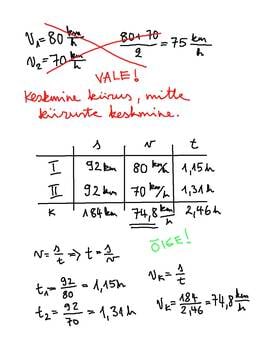 v₁=80 km/h
v₂=70 km/h
80+70/2 = 75 km/h
VALE!
Keskmine kiirus, mitte
kiiruste keskmine.
s v t
I 92 km 80 km/h 1,15h
II 92 km 70 km/h 1,31h
K 184 km 74,8 km/h 2,46h
v = s/t => t = s/v
ÕIGE!
t₁ = 92/80 = 1,15h
t₂ = 92/70 = 1,31h
v_K = s/t
v_K = 184/2,46 = 74,8 km/h